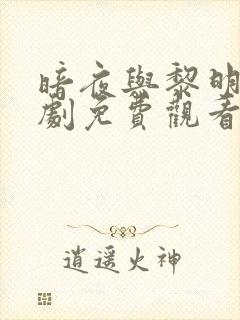 暗夜與黎明
劇免費觀看
逍遥火神